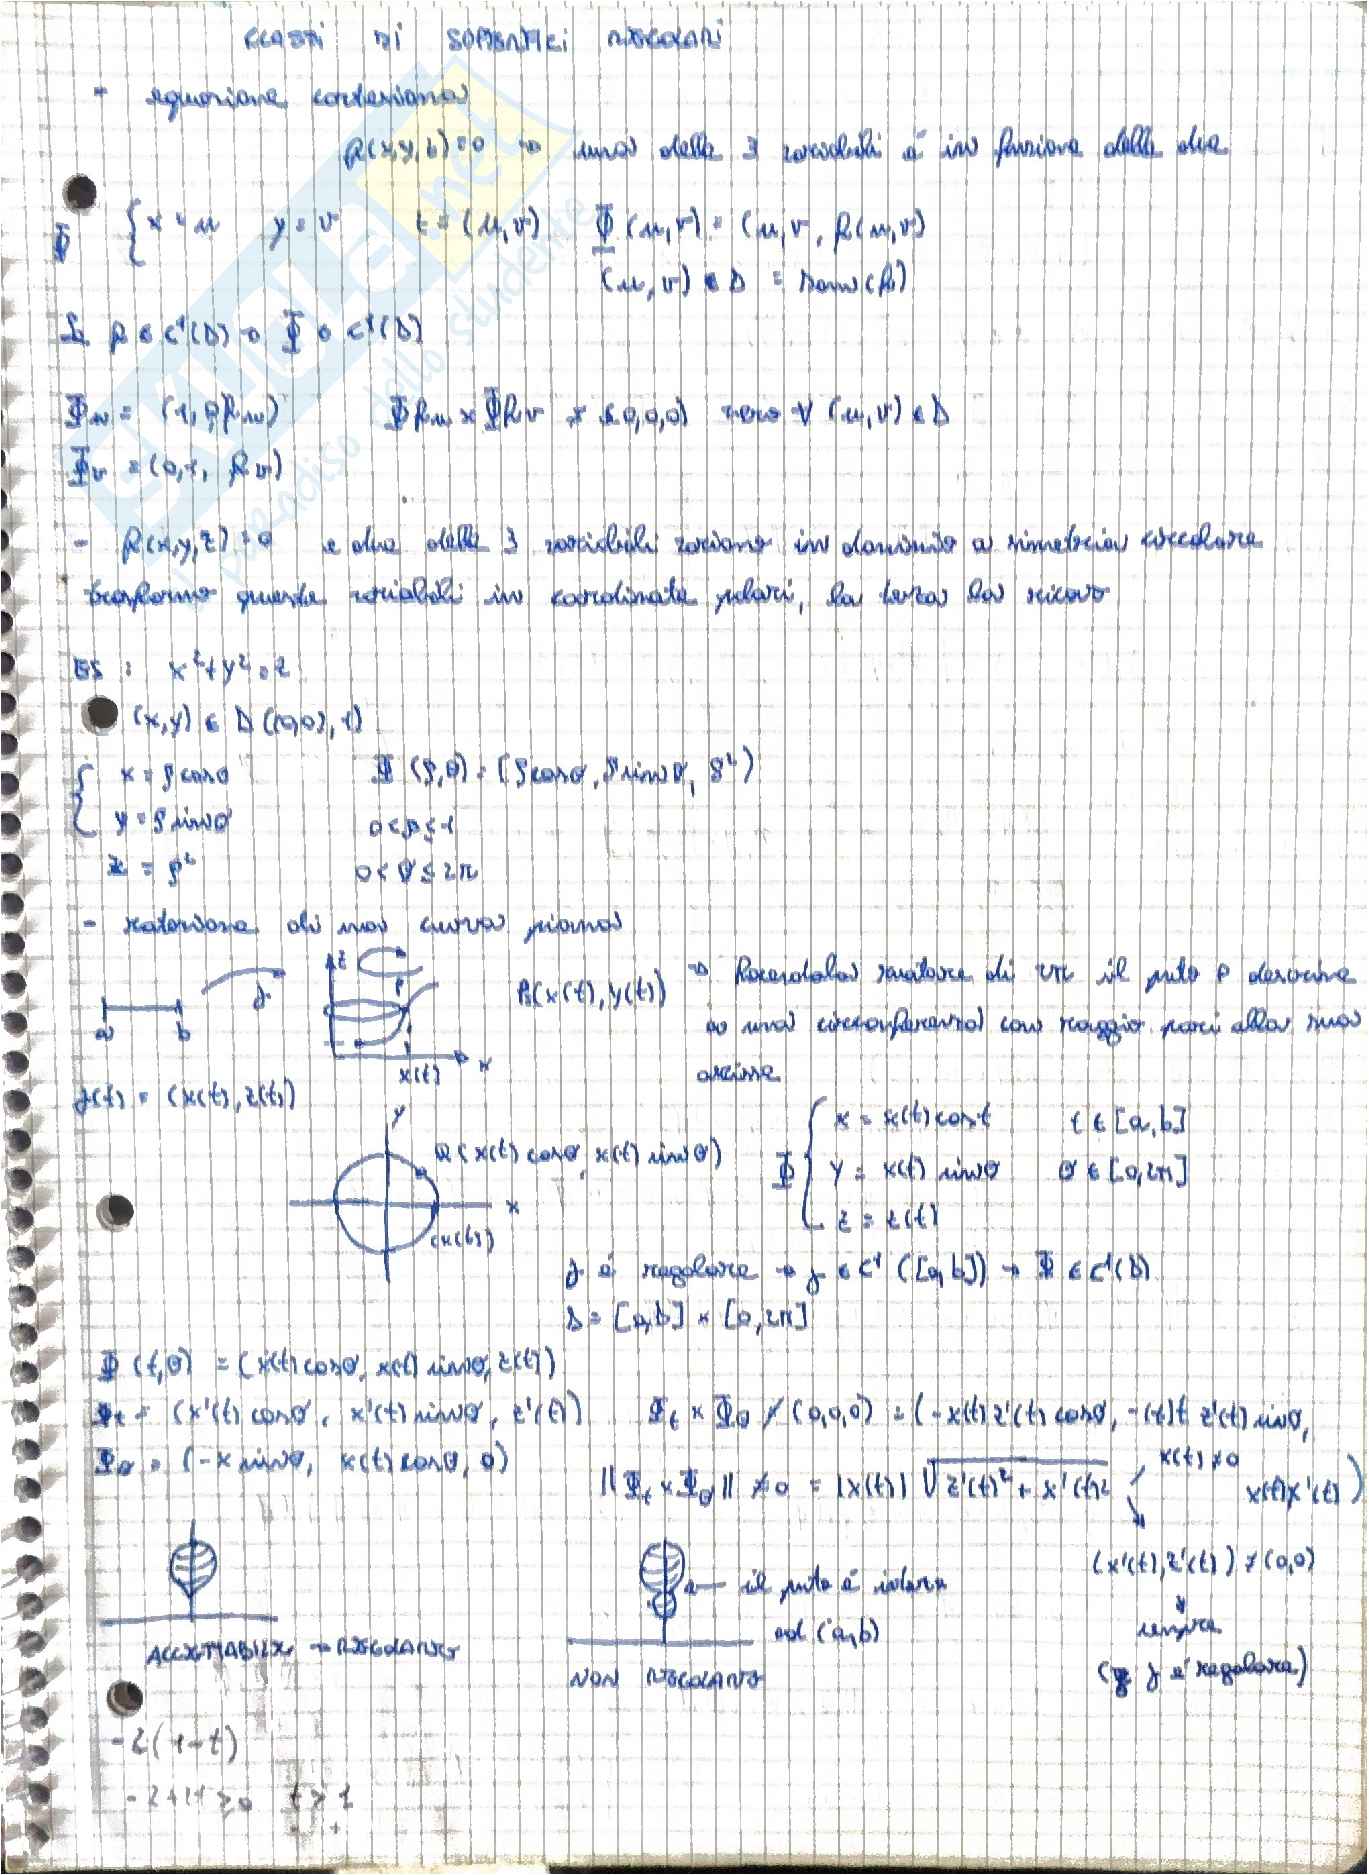 CLASSI DI SUPERFICI REGOLARI
- equazione cartesiana
f(x,y,z)=0 → una delle 3 variabili è in funzione delle due
Φ { x=u y=v z=(u,v) Φ(u,v) = (u,v, f(u,v))
(u,v) ∈ D = Dom(f)
Se f ∈ C¹(D) → Φ ∈ C¹(D)
Φu = (1,0,fu) Φfu × Φfv ≠ (0,0,0) ∀ (u,v) ∈ D
Φv = (0,1, fv)
- f(x,y,z)=0 e due delle 3 variabili variano in dominio a simmetria circolare
trasformo queste variabili in coordinate polari, la terza la ricavo
ES: x²+y²=z
(x,y) ∈ D((0,0),1)
{ x=ρcosθ Φ(ρ,θ) = (ρcosθ, ρsinθ, ρ²)
y=ρsinθ 0<ρ≤1
z = ρ² 0<θ≤2π
- rotazione di una curva piana
z P
a b γ P(x(t), y(t)) → Facendola ruotare di 2π il punto P descrive
una circonferenza con raggio pari alla sua
x(t) x ascissa
γ(t) = (x(t), z(t))
y
Q(x(t)cosθ, x(t)sinθ)
x
(x(t))
Φ { x = x(t)cost t ∈ [a,b]
y = x(t) sinθ θ ∈ [0,2π]
z = z(t)
γ è regolare → γ ∈ C¹([a,b]) → Φ ∈ C¹(D)
D = [a,b] × [0,2π]
Φ(t,θ) = (x(t)cosθ, x(t)sinθ, z(t))
Φt = (x'(t)cosθ, x'(t)sinθ, z'(t)) Φt × Φθ ≠ (0,0,0) = (-x(t)z'(t)cosθ, -(t)t z'(t)sinθ,
x(t)x'(t))
Φθ = (-x sinθ, x(t)cosθ, 0)
||Φt × Φθ|| ≠ 0 = |x(t)| √z'(t)² + x'(t)² x(t) ≠ 0
(x'(t), z'(t)) ≠ (0,0)
sempre
(γ è regolare)
il punto è interno
ad (a,b)
ACCETTABILE → REGOLARE
NON REGOLARE
-2(1-t)
-2+2t≥0 t>1
- +